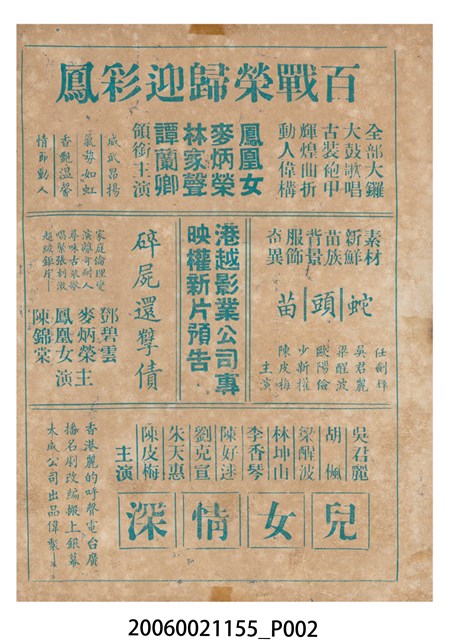 百戰榮歸迎彩鳳
全部大鑼
大鼓歌唱
古装砲甲
輝煌曲折
動人偉構
鳳凰女
麥炳榮
林家聲
譚蘭卿
領銜主演
威武昂揚
氣勢如虹
香艷溫馨
情節動人
素材
新鮮
苗族
背景
服飾
奇異
蛇頭苗
任劍輝
吳君麗
梁醒波
歐陽儉
少新權
陳皮梅
主演
港越影業公司專
映權新片預告
碎屍還孽債
家庭倫理變
演離奇耐人
尋味古裝歌
唱緊張刺激
超級鉅片
鄧碧雲
麥炳榮主
鳳凰女演
陳錦棠
吳君麗
胡楓
梁醒波
林坤山
李香琴
陳好逑
劉克宣
朱天惠
陳皮梅
主演
兒女情深
香港麗的呼聲電台廣
播名劇改編搬上銀幕
大成公司出品偉製
20060021155_P002